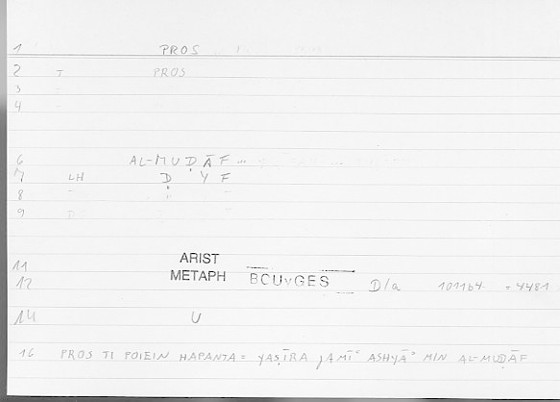 1 PROS
2 T PROS
3
4
6 AL-MUḌĀF ...
7 LH Ḍ Y F
8
9
11 ARIST
12 METAPH BOUYGES D/a 1011b4
14 U
16 PROS TI POIEIN HAPANTA = YAṢĪRA JAMĪʿ ASHYĀʾ MIN AL-MUḌĀF